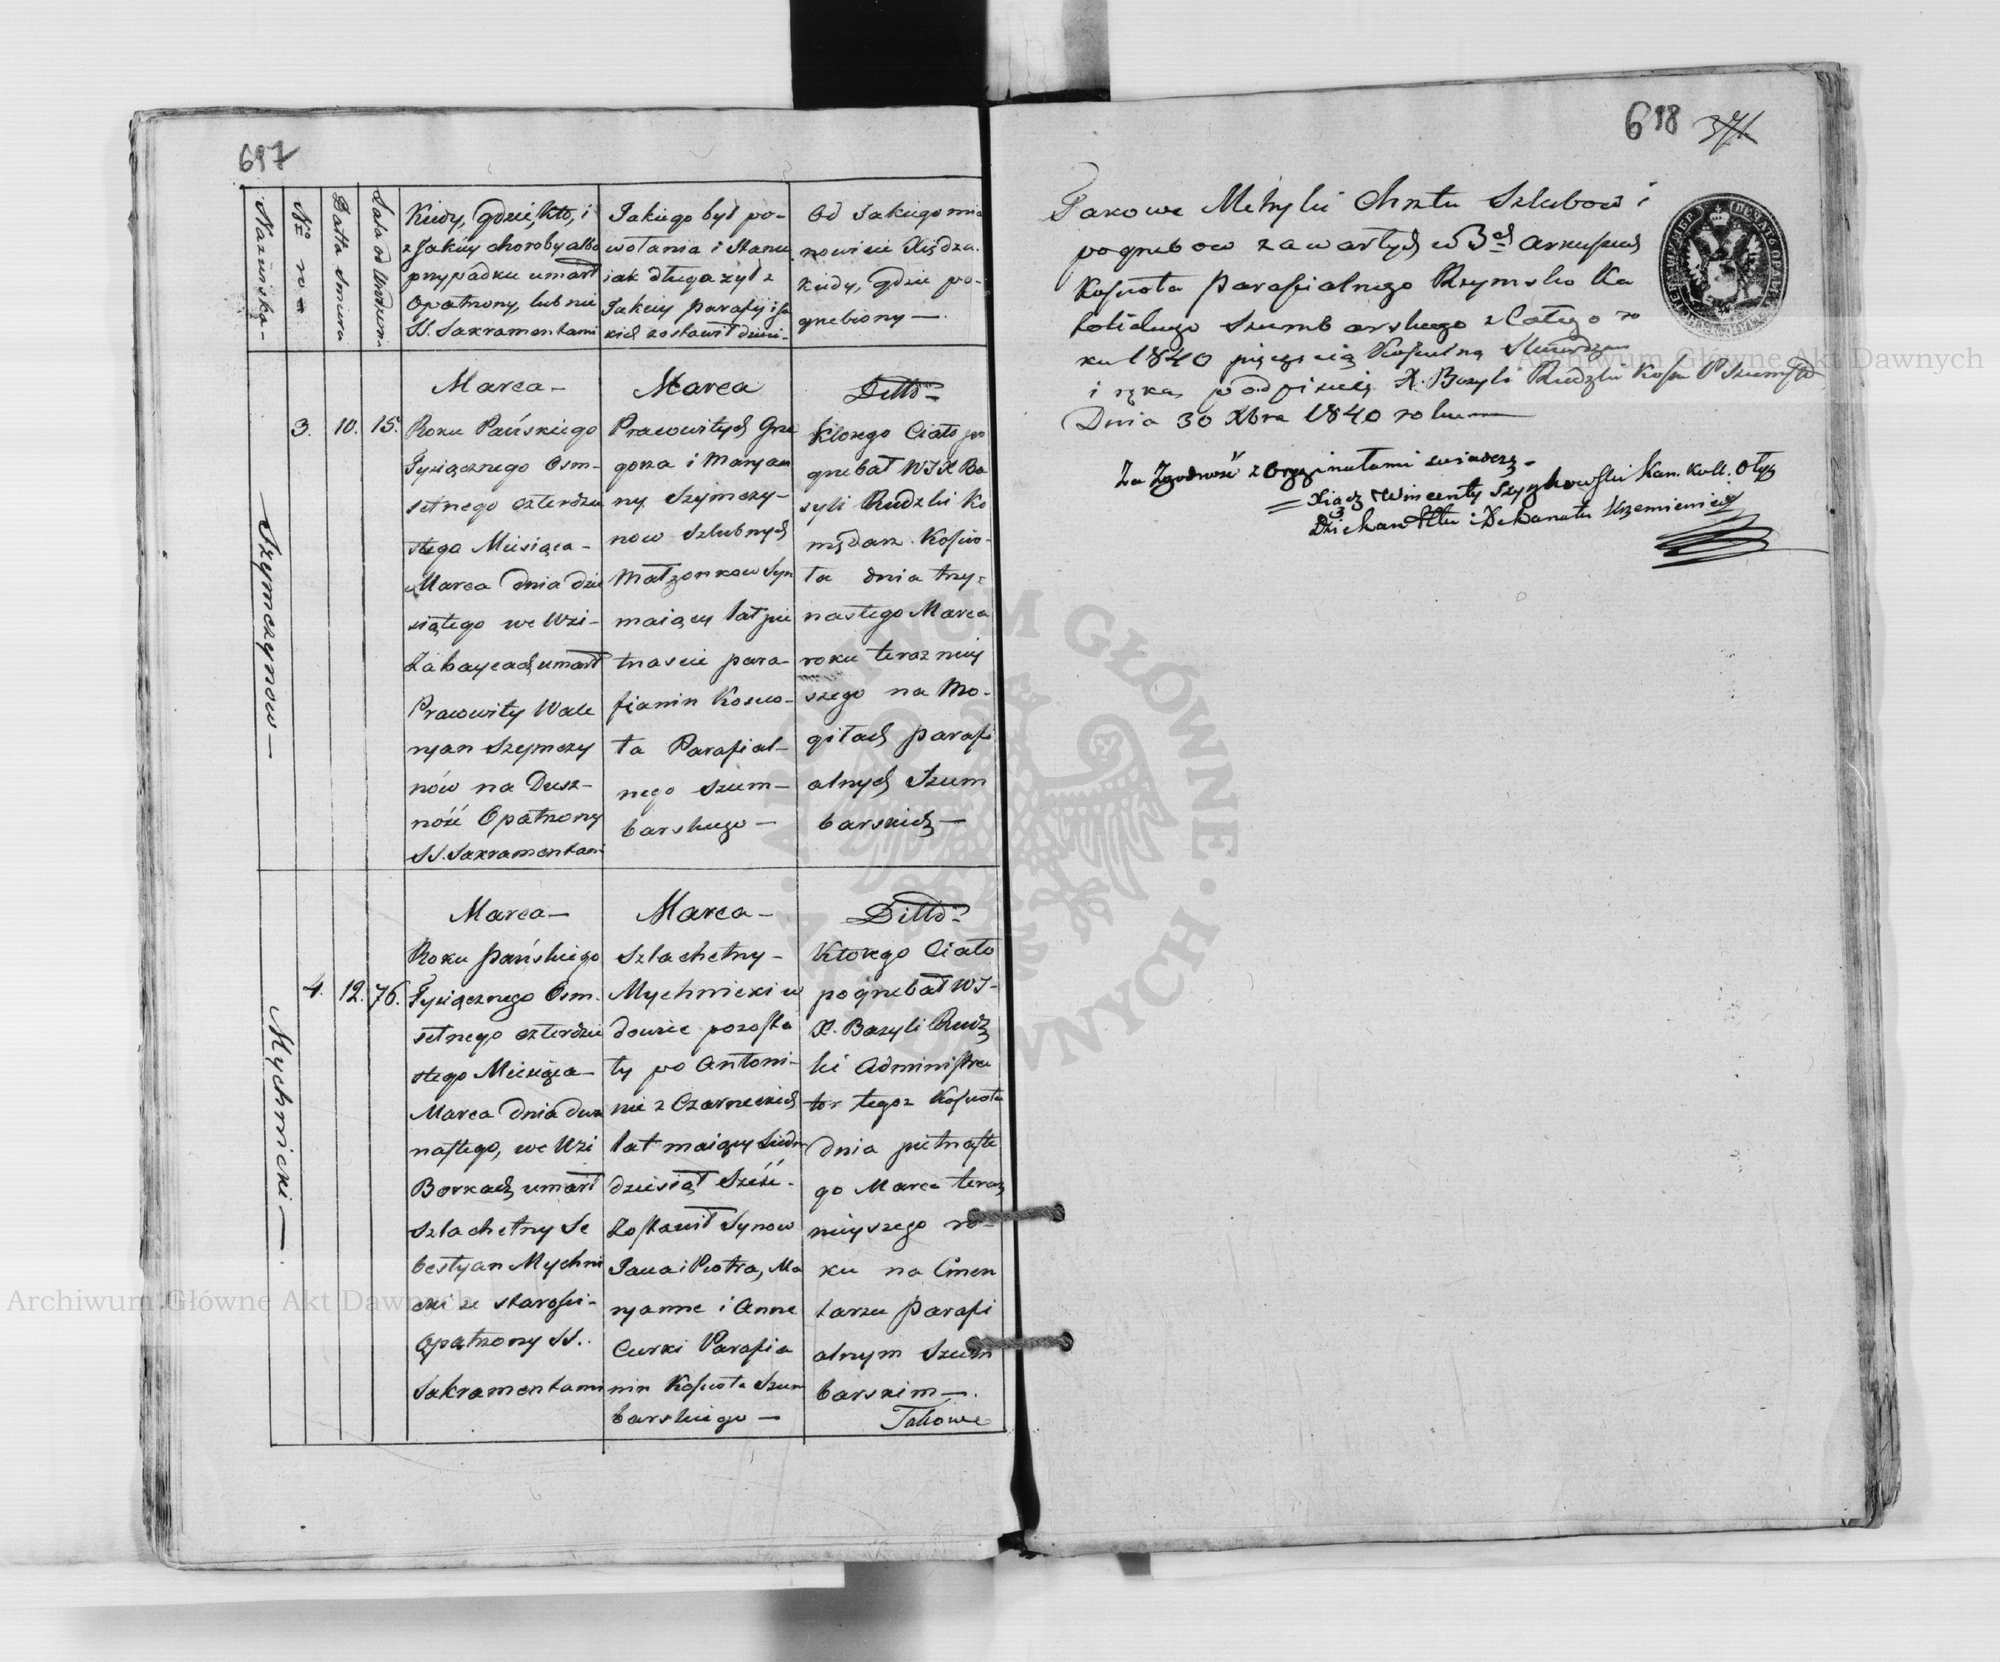 697
Nazwiska
No
Datta Smierci
Lata od Urodzen.
Kiedy, gdzie, kto, i
z jakiey choroby albo
przypadku umarł
Opatrzony, lub nie
SS. Sakramentami
Jakiego był po-
wołania i stanu
iak długo żył z
Jakiey parafij i ja
kich zostawił dzieci
Od Jakiego mia
nowicie Xiędza
kiedy, gdzie po-
grzebiony —
Szymczynow —
3.
10.
15.
Marca —
Roku Pańskiego
Tysiącznego Osm-
setnego czterdzie
stego Miesiąca —
Marca dnia dzie
siątego we Wsi —
Zabaycach umarł
Pracowity Wale
ryan Szymczy
nów na Dusz-
ność Opatrzony
SS. Sakramentami
Marca
Pracowitych Grze
gorza i Maryan
ny Szymczy-
now Szlubnych
Małżonkow Syn
maiący lat pie
tnascie para-
fianin Koscio-
ła Parafial-
nego Szum-
barskiego —
Ditto
Ktorego Ciało po
grzebał WJX Ba
zyli Rudzki Ko
mędarz Koscio-
ła dnia trzy-
nastego Marca
roku teraznieÿ
szego na Mo-
giłach parafi
alnych Szum
barskich —
Mychnicki —
4.
12.
76.
Marca —
Roku Pańskiego
Tysiącznego Osm.
setnego czterdzie
stego Miesiąca —
Marca dnia dwu
nastego, we Wsi
Borkach umarł
Szlachetny Se
bestyan Mychni
cki ze starosci-
Opatrzony SS.
Sakramentami
Marca —
Szlachetny —
Mychnicki w
dowiec pozosta
ły po Antoni-
nie z Czarneckich
lat maiący siedm
dziesiąt Sześć -
Zostawił Synow
Jana i Piotra, Ma
ryanne i Anne
Curki Parafia
nin Kościoła Szum
barskiego —
Ditto
Ktorego Ciało
pogrzebał WJ-
X. Bazyli Rudz
ki Administra
tor tegoz Kościoła
dnia pietnaste
go Marca teraz
nieyszego ro-
ku na Cmen
tarzu parafi
alnym Szum
barskim —.
Takowe
618
371
Takowe Metryki Chrztu Szlubow i
pogrzebow zawartych w 3ch arkuszach
Kościoła Parafialnego Rzymsko Ka
tolickiego Szumbarskiego z Całego ro
ku 1840 pięczęcią Kościelną Stwierdzam
i ręką podpisuię X. Bazyli Rudzki
Dnia 30 Xbra 1840 roku —
Za Zgodność z Orÿginałami swiadczę —
Xiądz Wincenty Szyszkowski Kan. Koll. Ołyc
Dziekan i Dekanatu Krzemieniec
ARCHIWUM GŁÓWNE AKT DAWNYCH
Archiwum Główne Akt Dawnych
Archiwum Główne Akt Dawnych